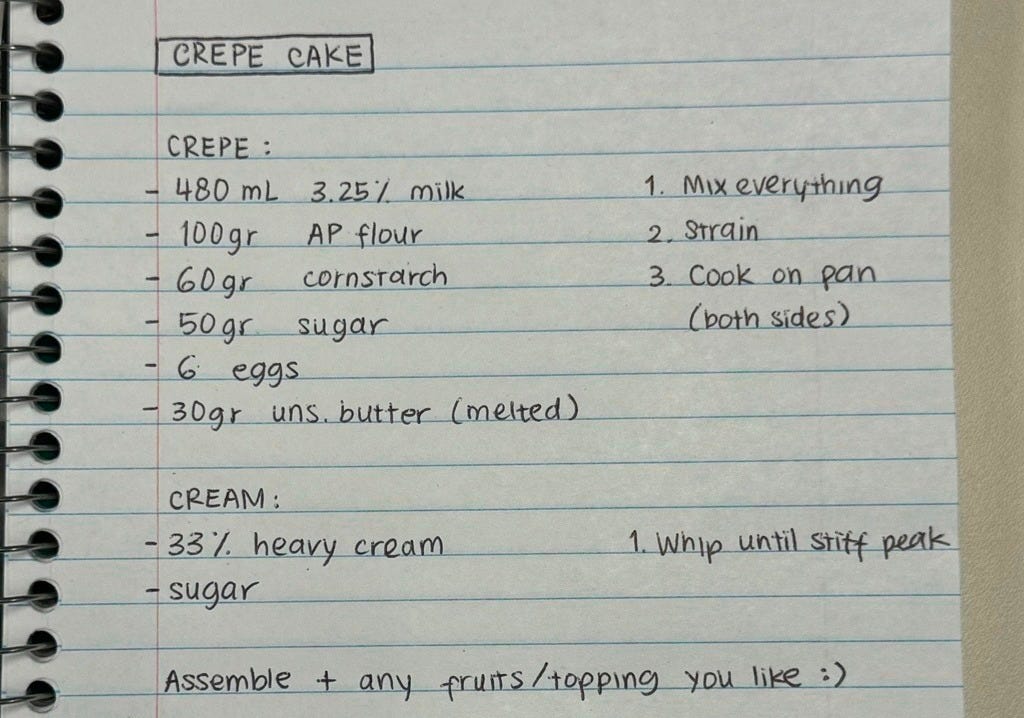 CREPE CAKE
CREPE :
- 480 mL 3.25% milk
- 100gr AP flour
- 60gr cornstarch
- 50gr sugar
- 6 eggs
- 30gr uns. butter (melted)
1. Mix everything
2. Strain
3. Cook on pan
(both sides)
CREAM :
- 33% heavy cream
- sugar
1. Whip until stiff peak
Assemble + any fruits/topping you like :)